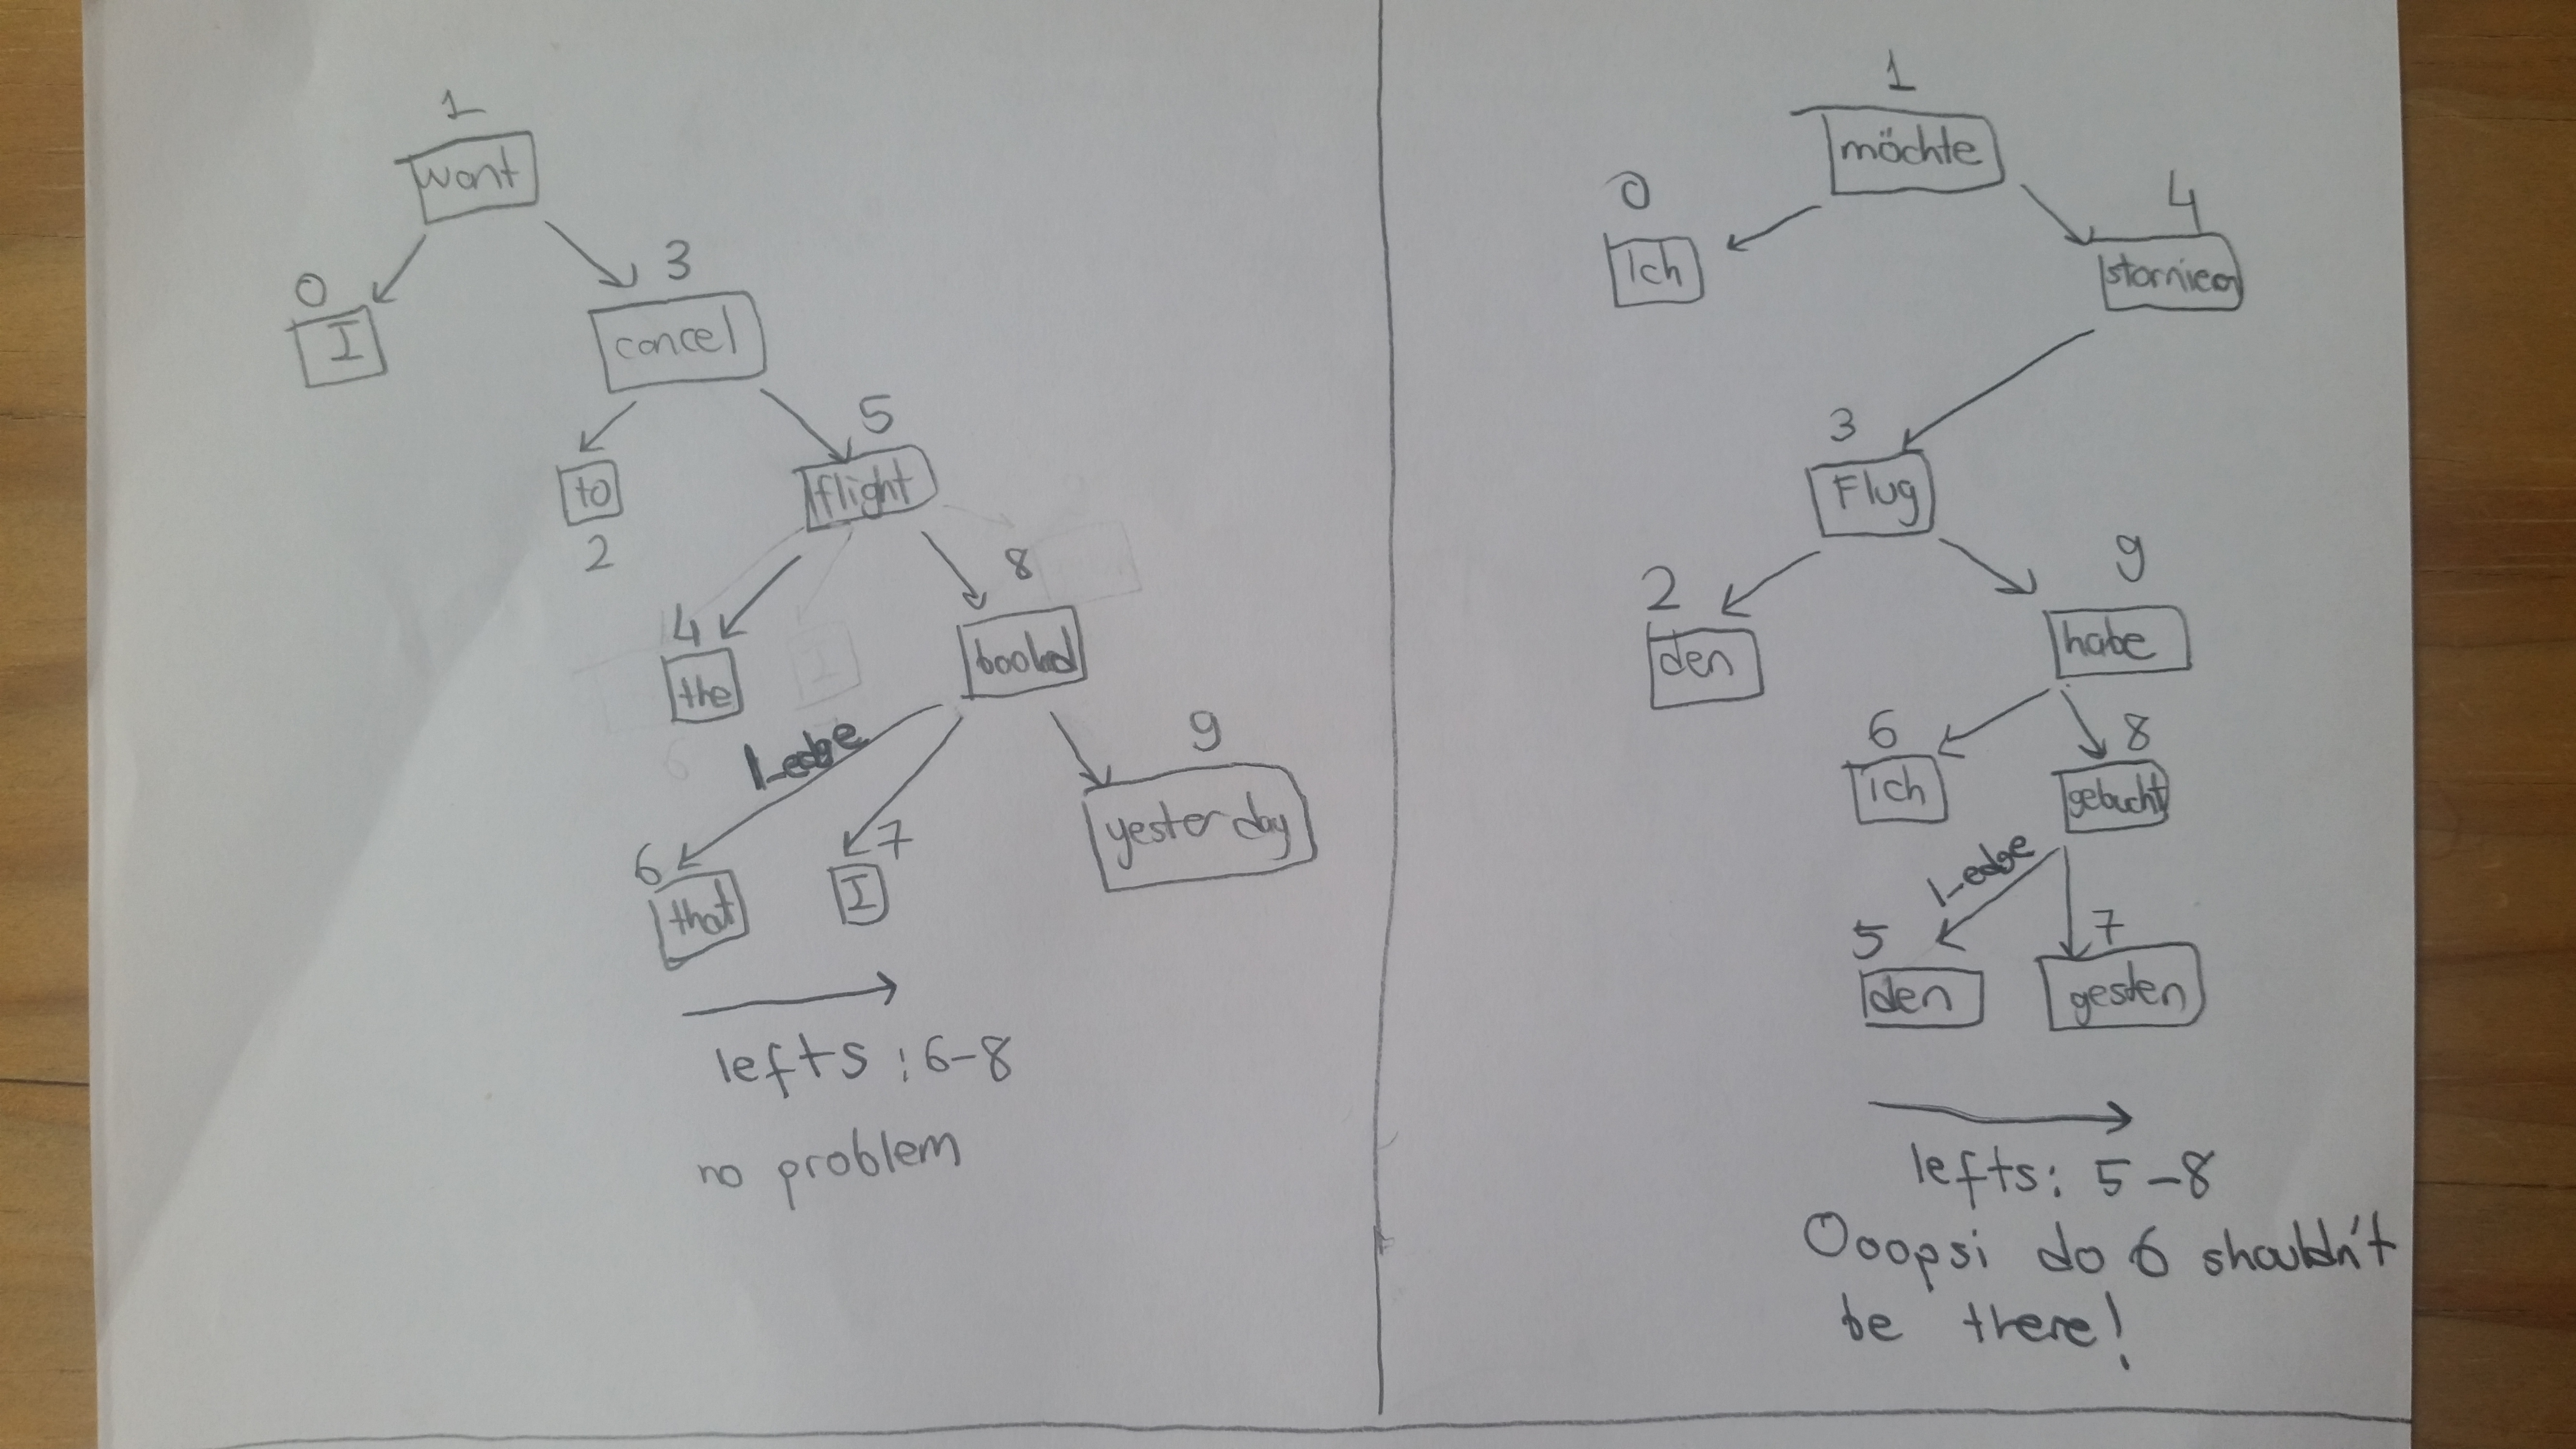 1
want
0
I
3
cancel
to
2
5
flight
4
the
8
booked
l_edge
6
that
7
I
9
yesterday
lefts : 6-8
no problem
1
möchte
0
Ich
4
3
Flug
2
den
9
habe
6
ich
8
gebucht
l_edge
5
den
7
gesten
lefts: 5-8
Ooopsi do 6 shouldn't
be there!